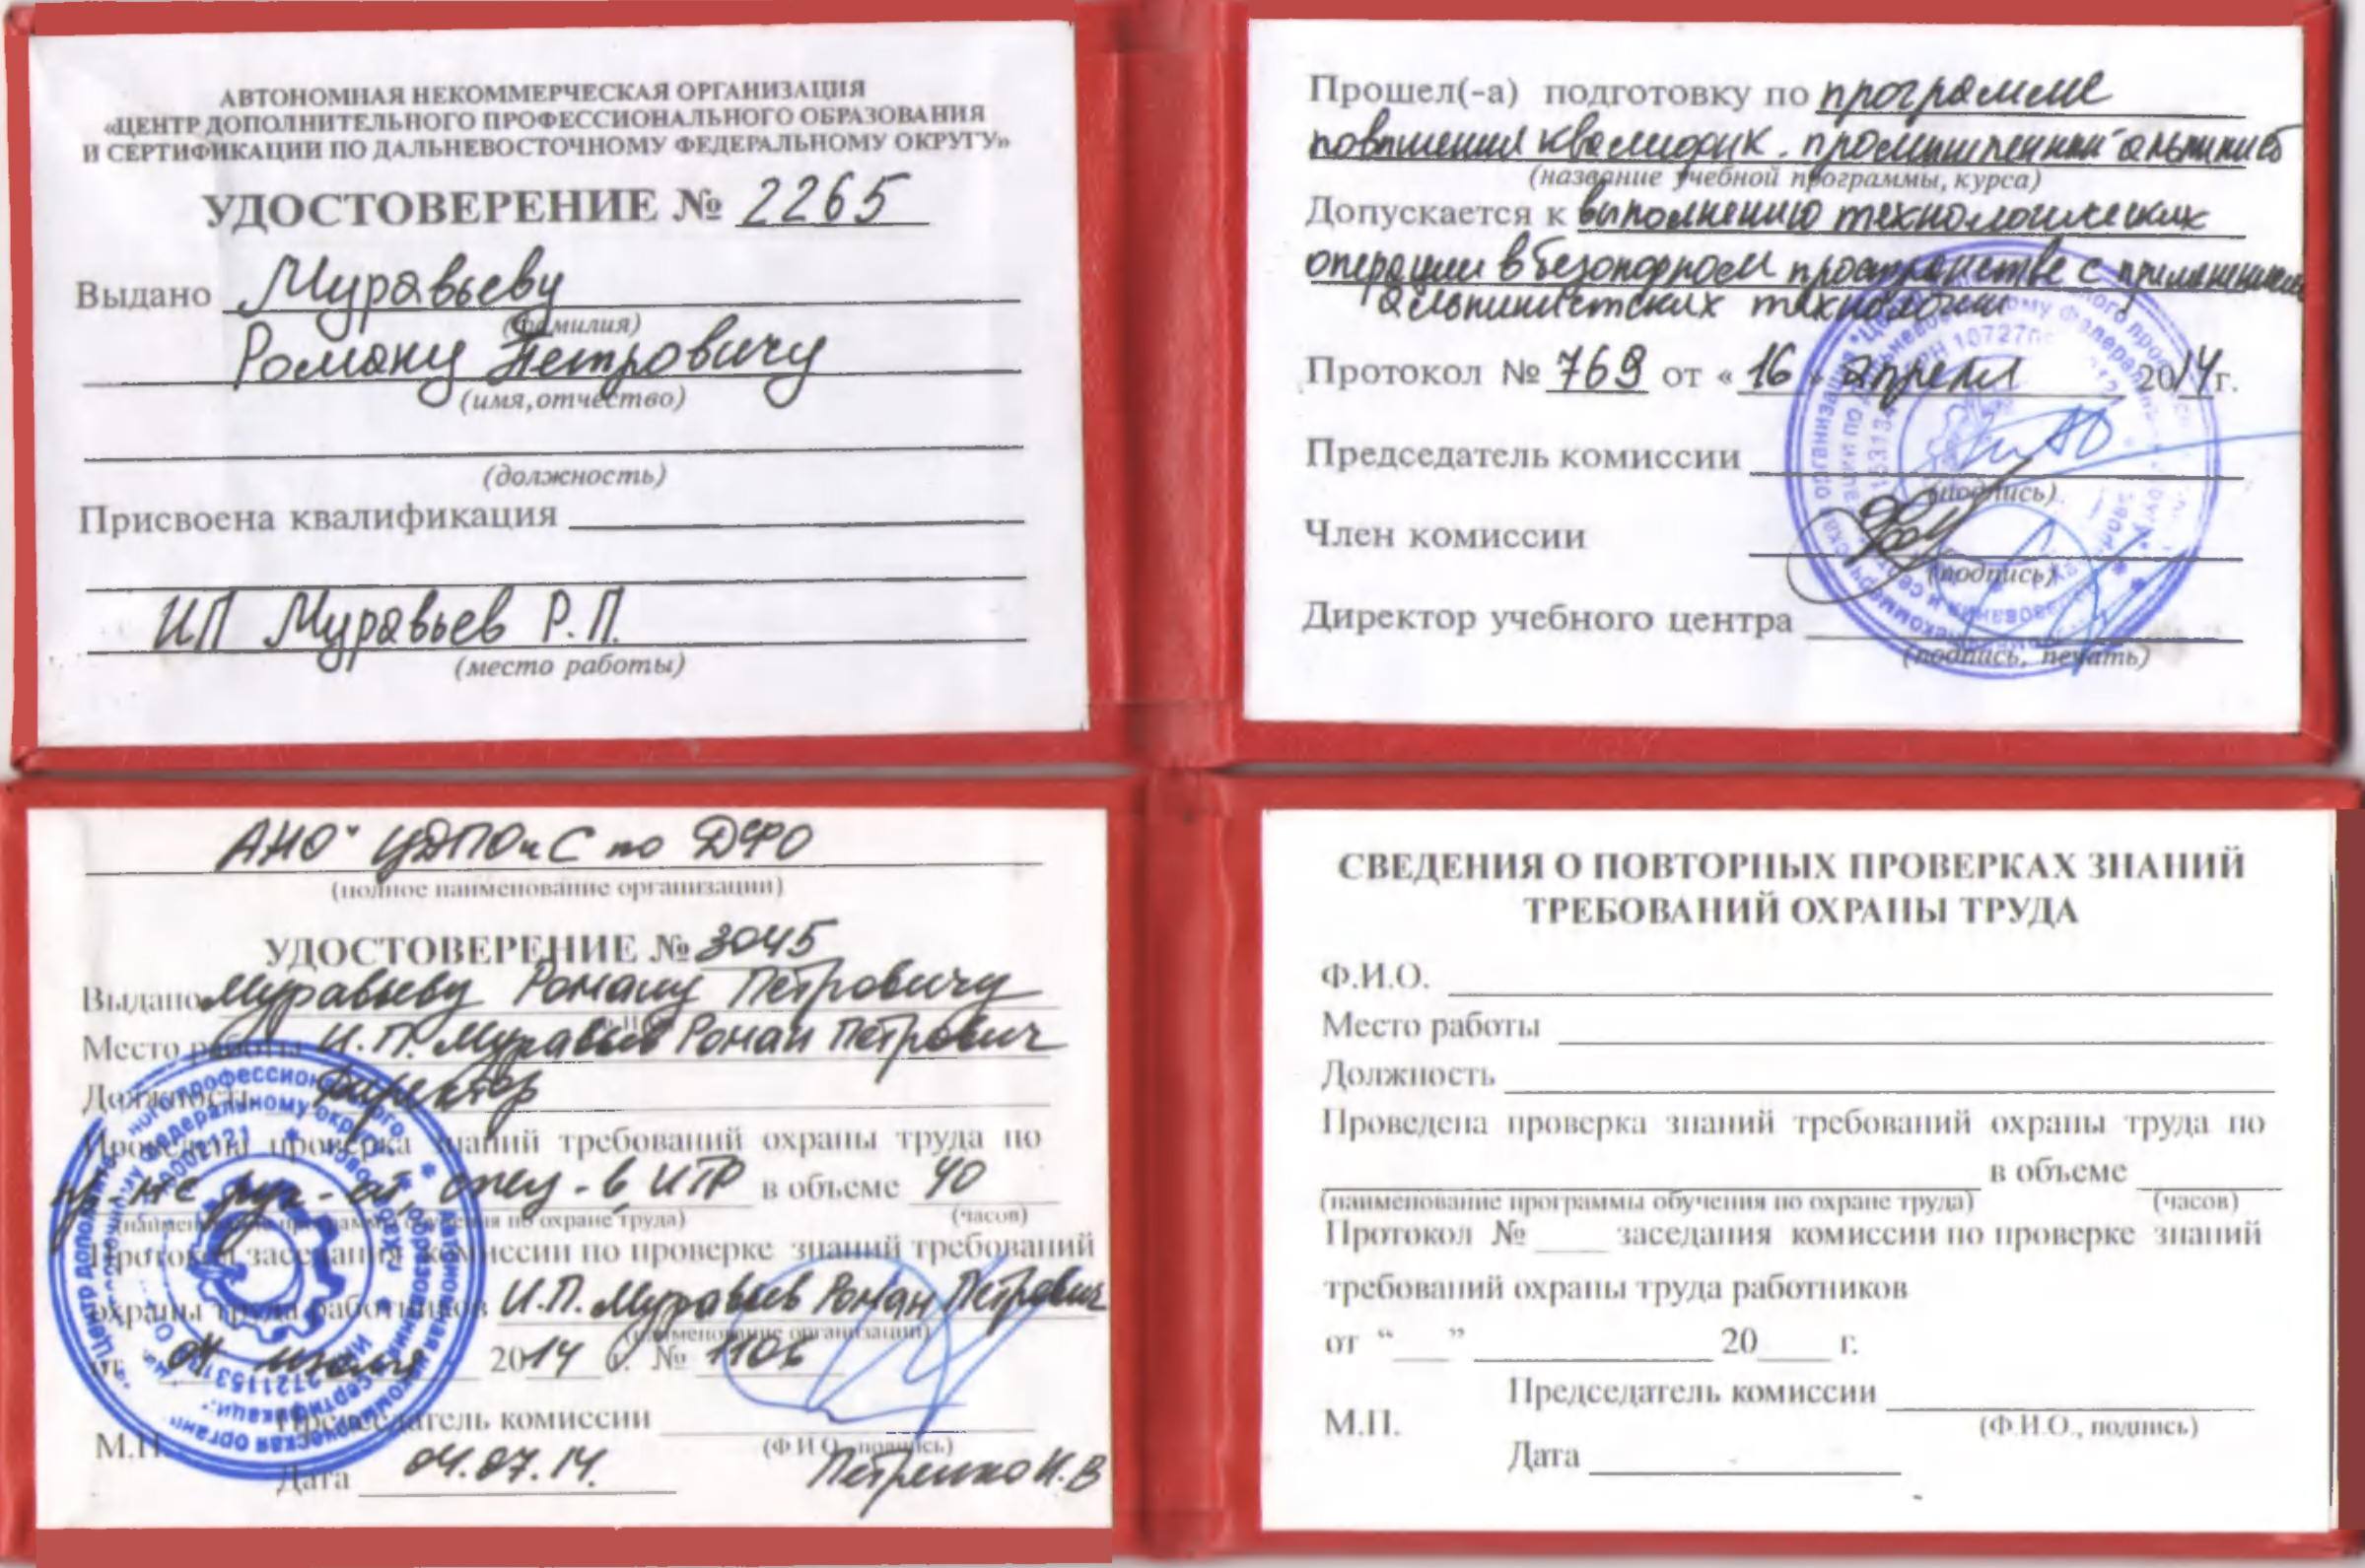 АВТОНОМНАЯ НЕКОММЕРЧЕСКАЯ ОРГАНИЗАЦИЯ
«ЦЕНТР ДОПОЛНИТЕЛЬНОГО ПРОФЕССИОНАЛЬНОГО ОБРАЗОВАНИЯ
И СЕРТИФИКАЦИИ ПО ДАЛЬНЕВОСТОЧНОМУ ФЕДЕРАЛЬНОМУ ОКРУГУ»
УДОСТОВЕРЕНИЕ № 2265
Выдано Муравьеву
(фамилия)
Роману Петровичу
(имя,отчество)
(должность)
Присвоена квалификация
ИП Муравьев Р.П.
(место работы)
Прошел(-а) подготовку по программе
повышения квалифик. промышленный альпинист
(название учебной программы, курса)
Допускается к выполнению технологических
операции в безопорном пространстве с применением
альпинистских технологии
Протокол № 769 от «16» апреля 2014г.
Председатель комиссии
(подпись)
Член комиссии
(подпись)
Директор учебного центра
(подпись, печать)
АНО "ЦДПОиС по ДФО
(полное наименование организации)
УДОСТОВЕРЕНИЕ № 3045
Выдано Муравьеву Роману Петровичу
Место работы И.П. Муравьев Роман Петрович
Должность директор
Проведена проверка знаний требований охраны труда по
рук-ей, спец-в, ИТР в объеме 40
(наименование программы обучения по охране труда) (часов)
Протокол заседания комиссии по проверке знаний требований
охраны труда работников И.П. Муравьев Роман Петрович
(наименование организации)
от 04 июля 2014 г. № 1106
Председатель комиссии
(Ф.И.О., подпись)
М.П.
Дата 04.07.14. Петренко Н.В
СВЕДЕНИЯ О ПОВТОРНЫХ ПРОВЕРКАХ ЗНАНИЙ
ТРЕБОВАНИЙ ОХРАНЫ ТРУДА
Ф.И.О.
Место работы
Должность
Проведена проверка знаний требований охраны труда по
в объеме
(наименование программы обучения по охране труда) (часов)
Протокол № ____ заседания комиссии по проверке знаний
требований охраны труда работников
от “___” 20____ г.
Председатель комиссии
М.П. (Ф.И.О., подпись)
Дата